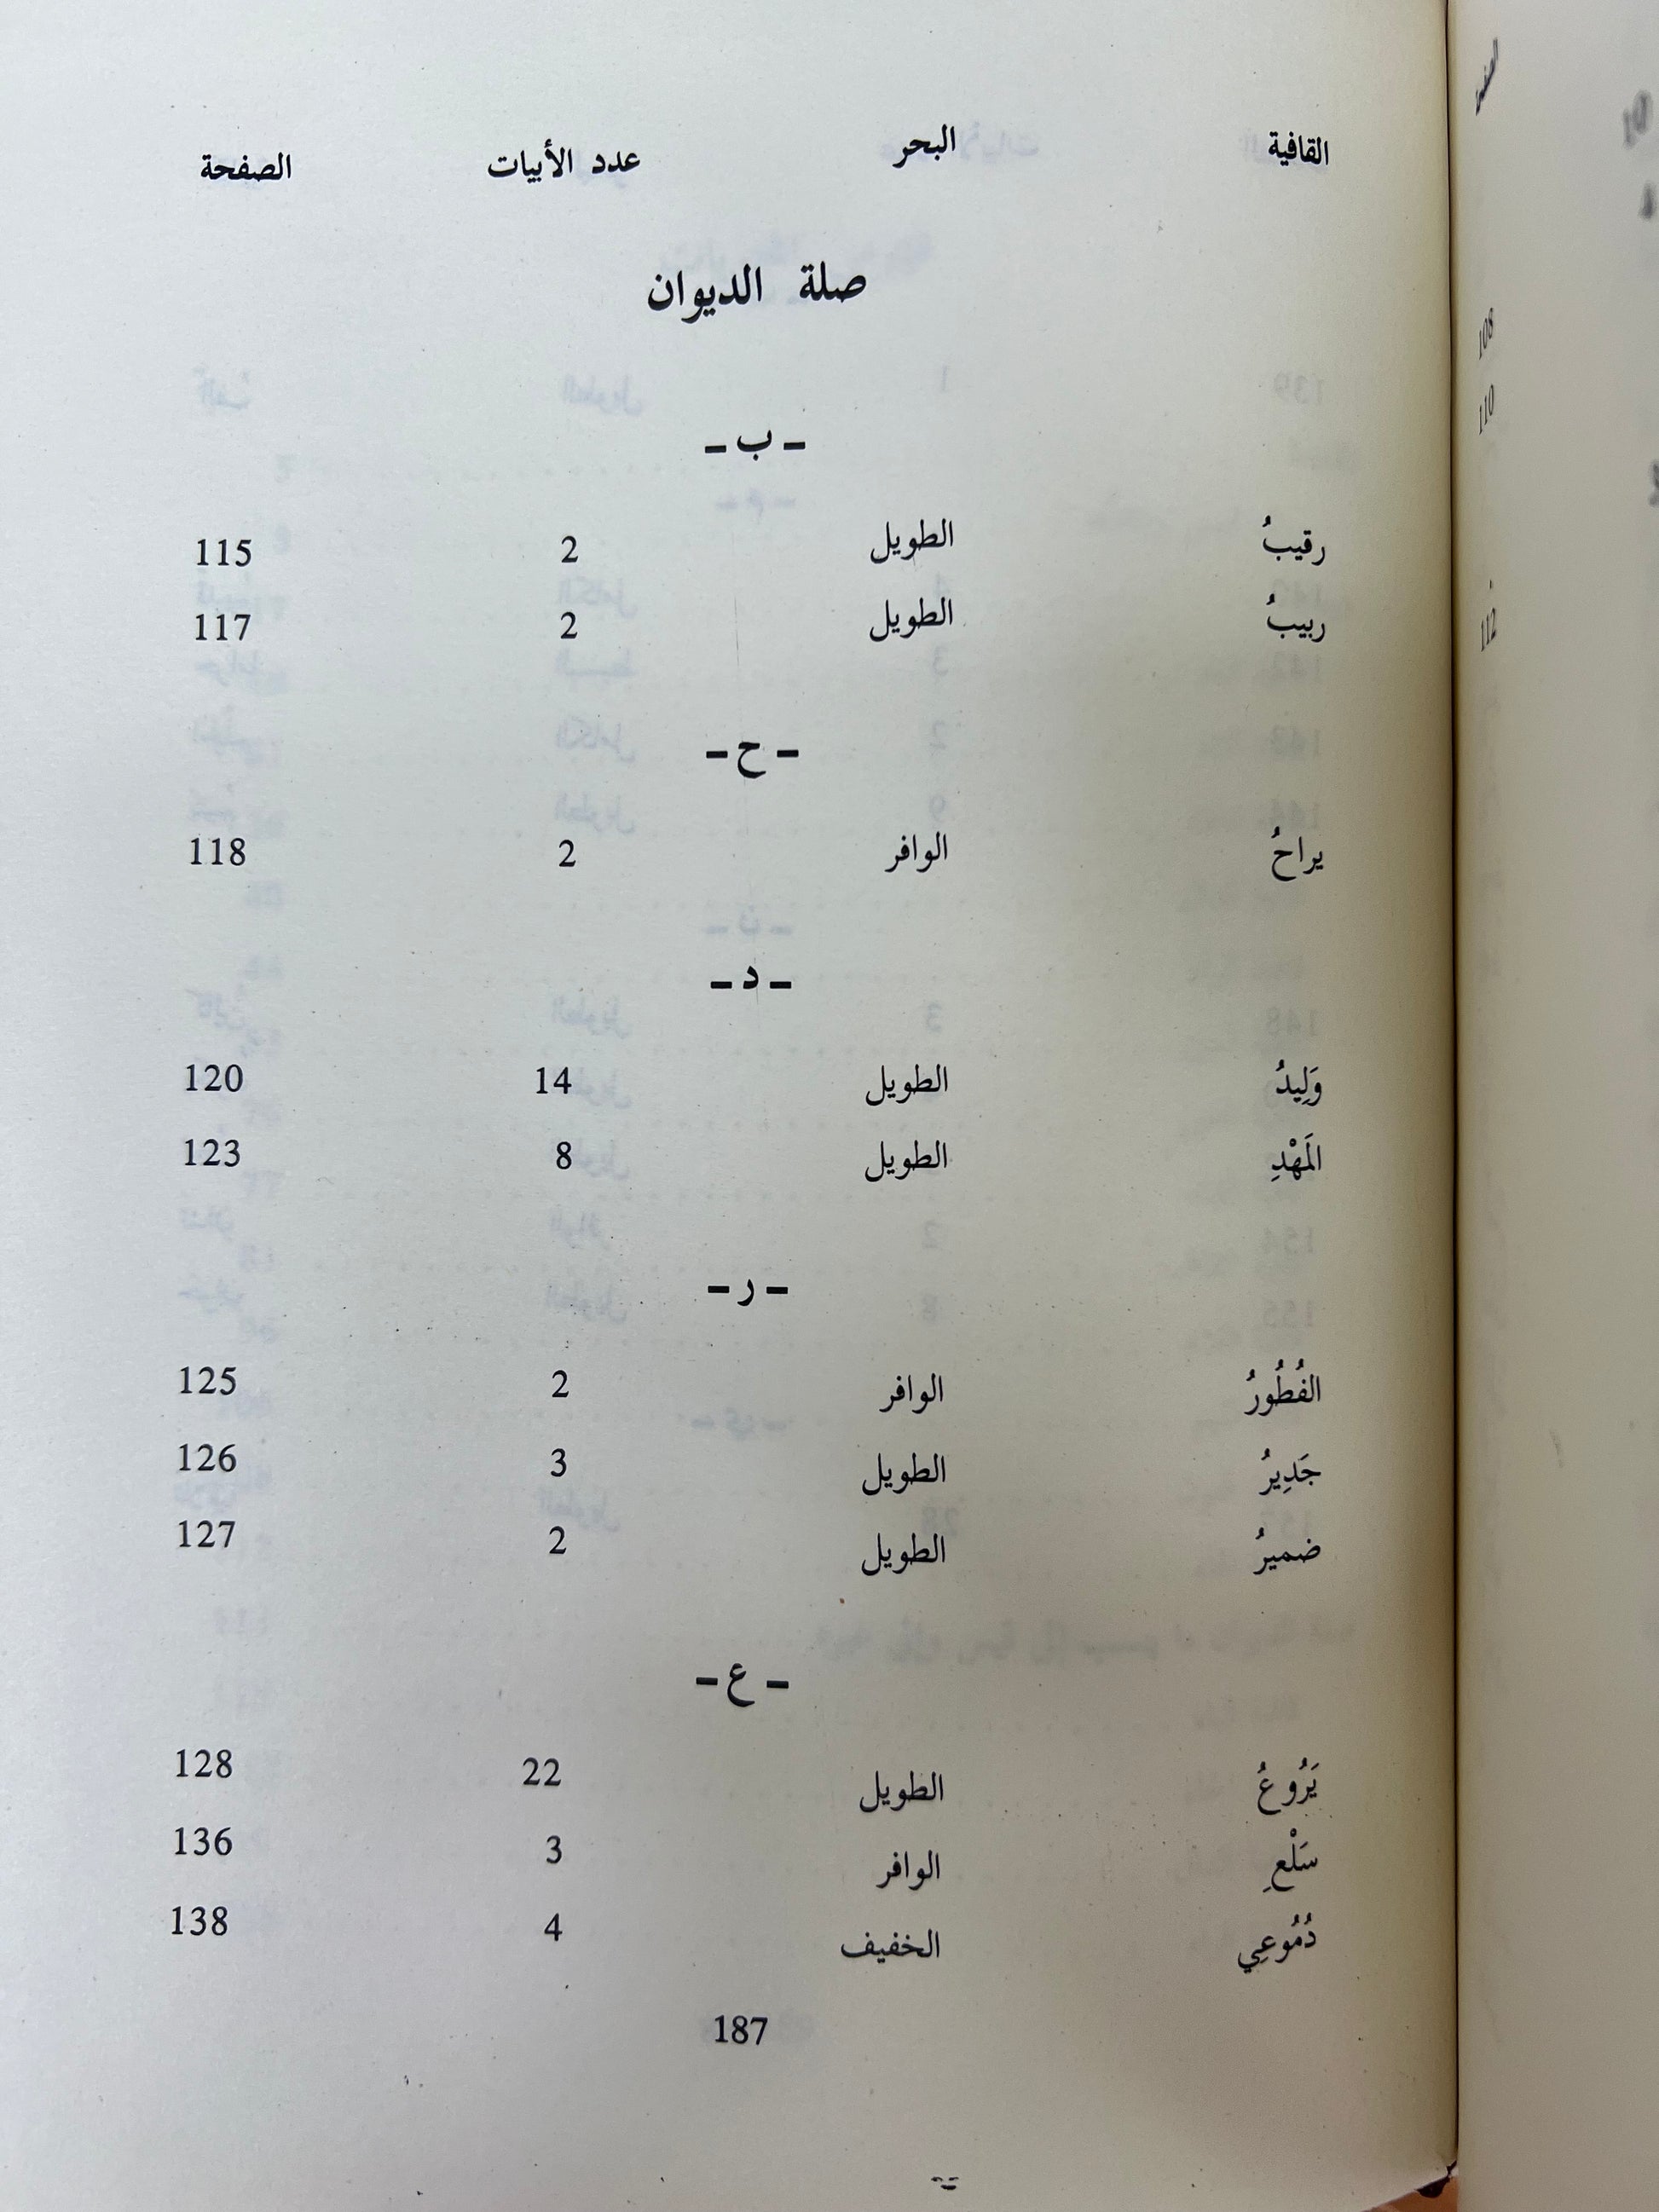 القافية البحر عدد الأبيات الصفحة
صلة الديوان
- ب -
رقيبُ الطويل 2 115
ربيبُ الطويل 2 117
- ح -
يراحُ الوافر 2 118
- د -
وَلِيدُ الطويل 14 120
المَهْدِ الطويل 8 123
- ر -
الفُطُورُ الوافر 2 125
جَدِيرُ الطويل 3 126
ضميرُ الطويل 2 127
- ع -
يَرُوعُ الطويل 22 128
سَلْعِ الوافر 3 136
دُمُوعِي الخفيف 4 138
187
الصفحة
108
110
112